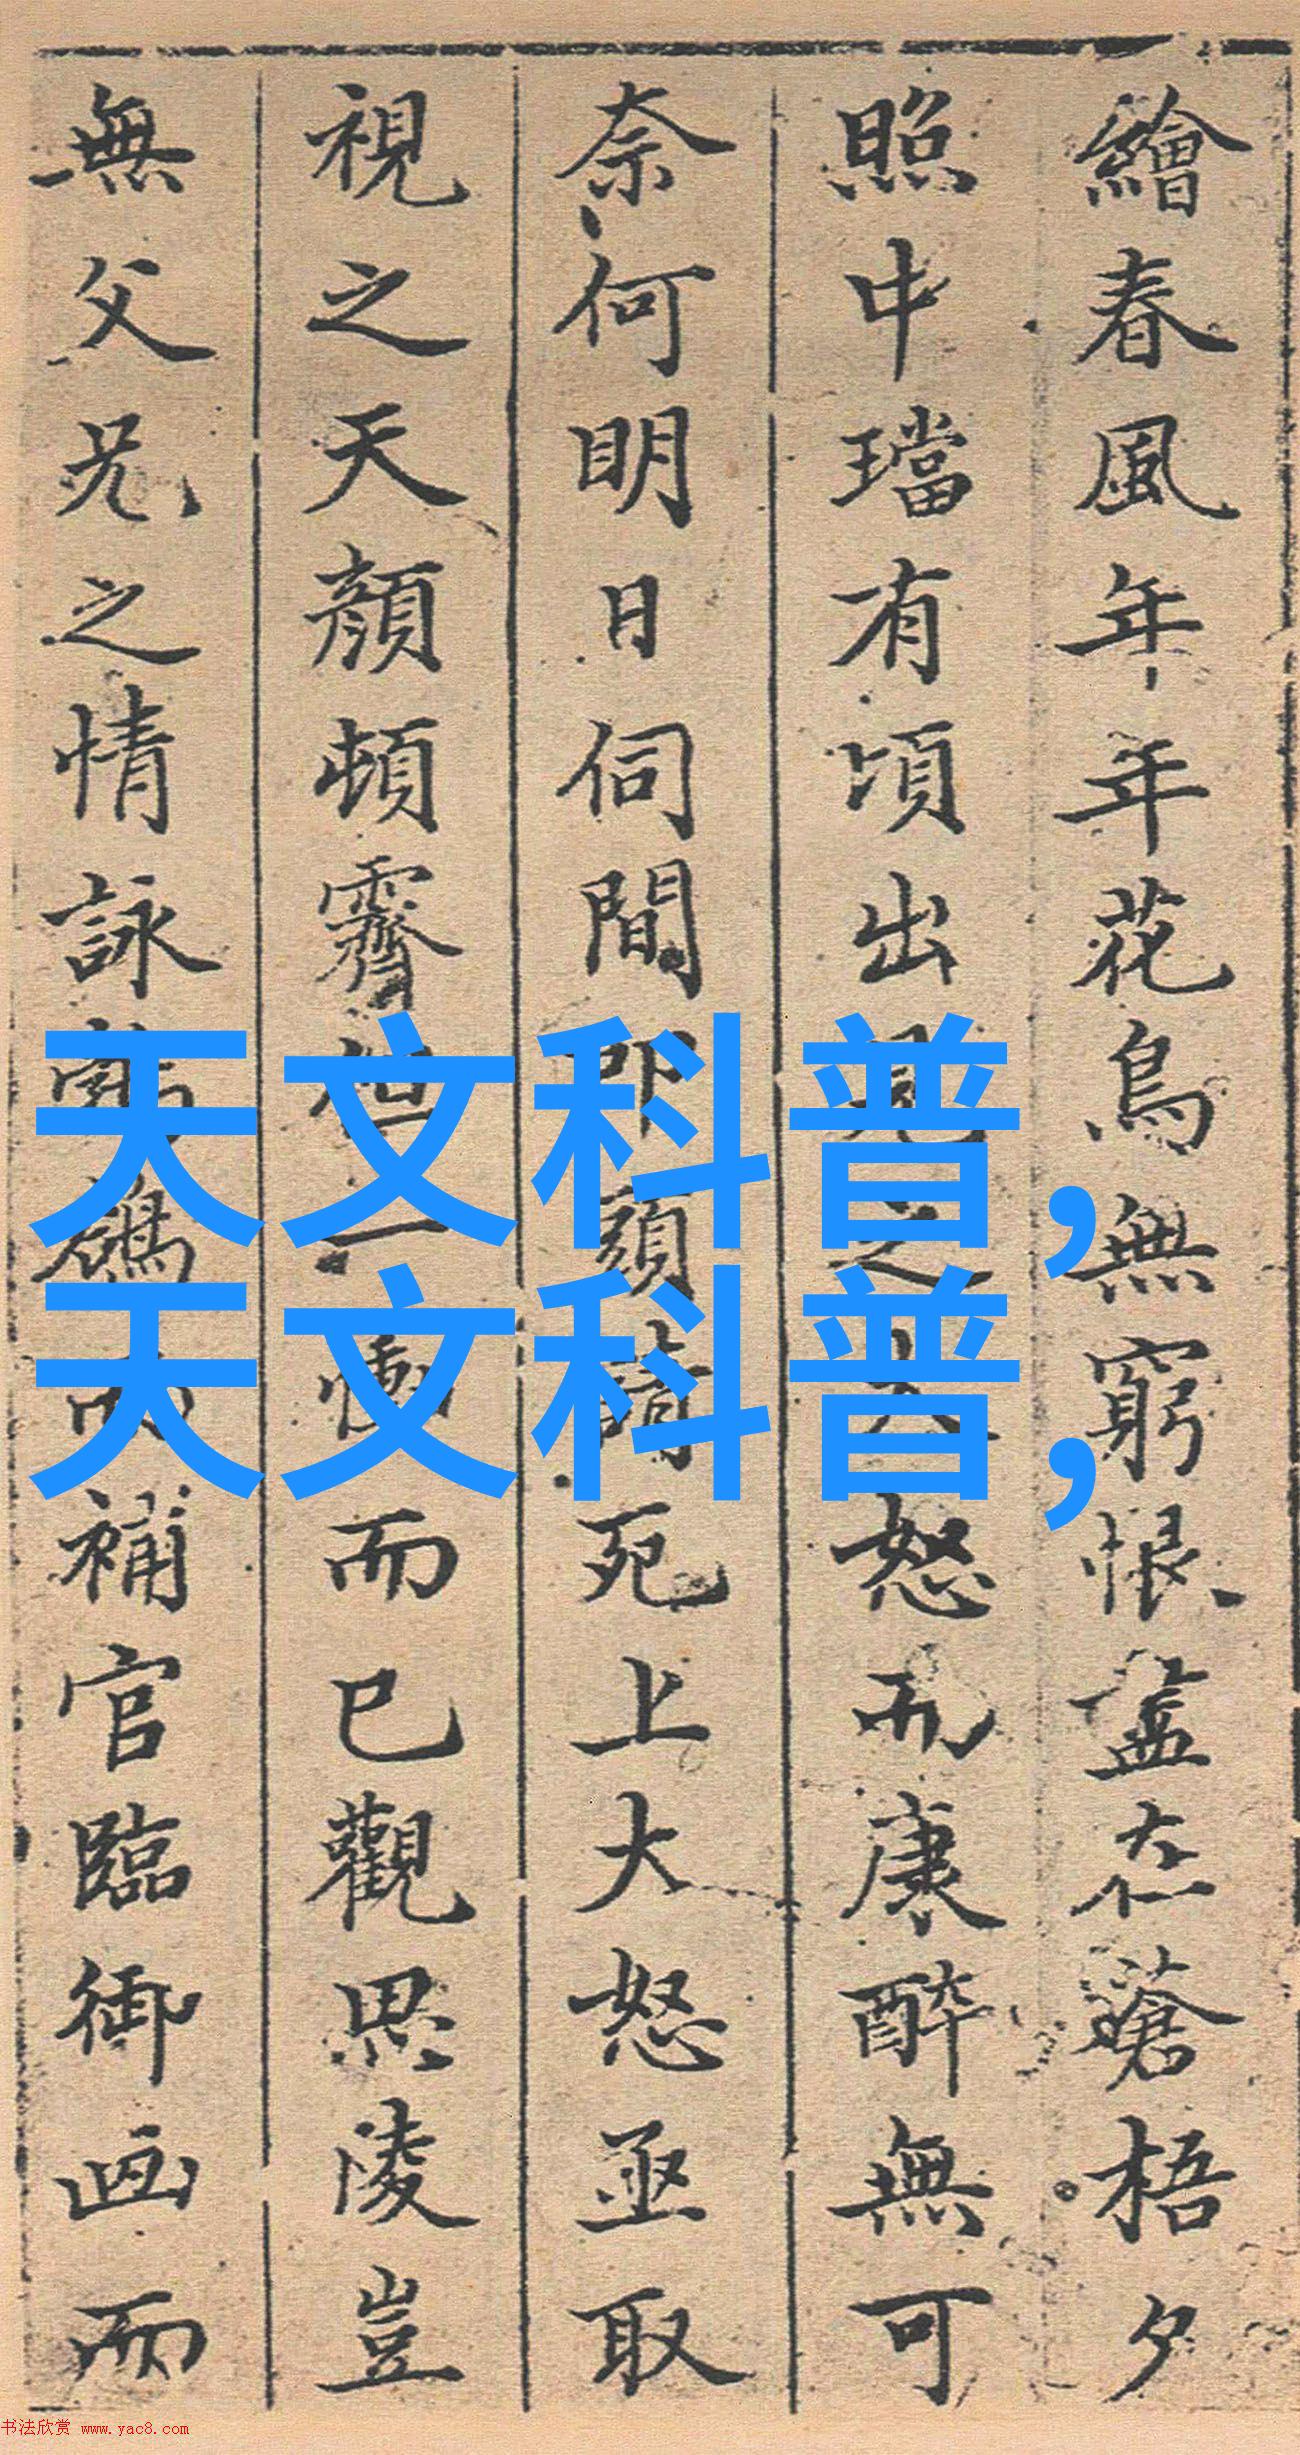 繪春風年年花鳥無窮恨盡在蒼梧夕
照中璫有頃出見之大怒而康醉無可
奈何明日伺間叩頭請死上大怒亟取
視之天顏頓霽但一慟而已觀思陵豈
無父兄之情詠而補官臨御画而
天文科普,
天文科普,
书法欣赏 www.yac8.com